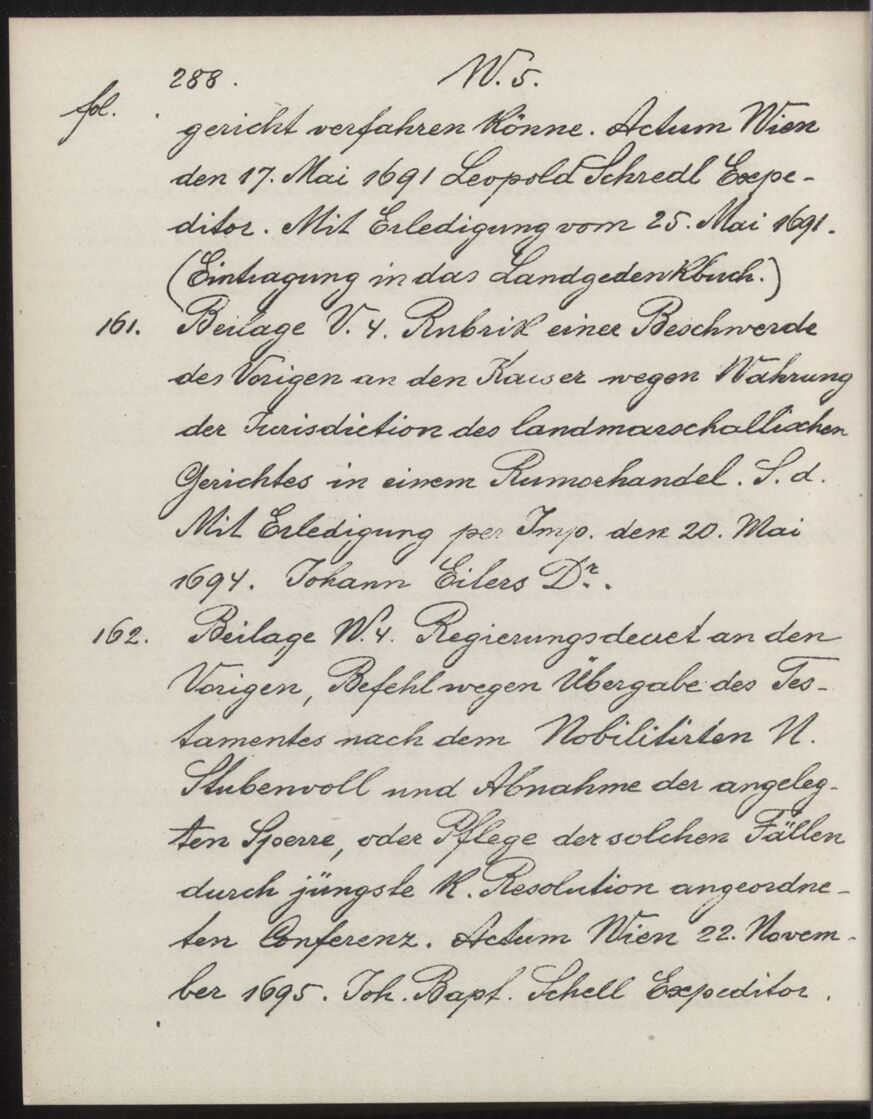 288. W. 5.
fol. gericht verfahren könne. Actum Wien
den 17. Mai 1691 Leopold Schredl Expe-
ditor. Mit Erledigung vom 25. Mai 1691.
(Eintragung in das Landgedenkbuch.)
161. Beilage V. 4. Rubrik einer Beschwerde
des Vorigen an den Kaiser wegen Wahrung
der Jurisdiction des landmarschallischen
Gerichtes in einem Rumorhandel. S. d.
Mit Erledigung per Imp. den 20. Mai
1694. Johann Eilers Dr.
162. Beilage W. 4. Regierungsdecret an den
Vorigen, Befehl wegen Übergabe des Tes-
tamentes nach dem Nobilitirten N.
Stubenvoll und Abnahme der angeleg-
ten Sperre, oder Pflege der solchen Fällen
durch jüngste K. Resolution angeordne-
ten Conferenz. Actum Wien 22. Novem-
ber 1695. Joh. Bapt. Schell Expeditor.